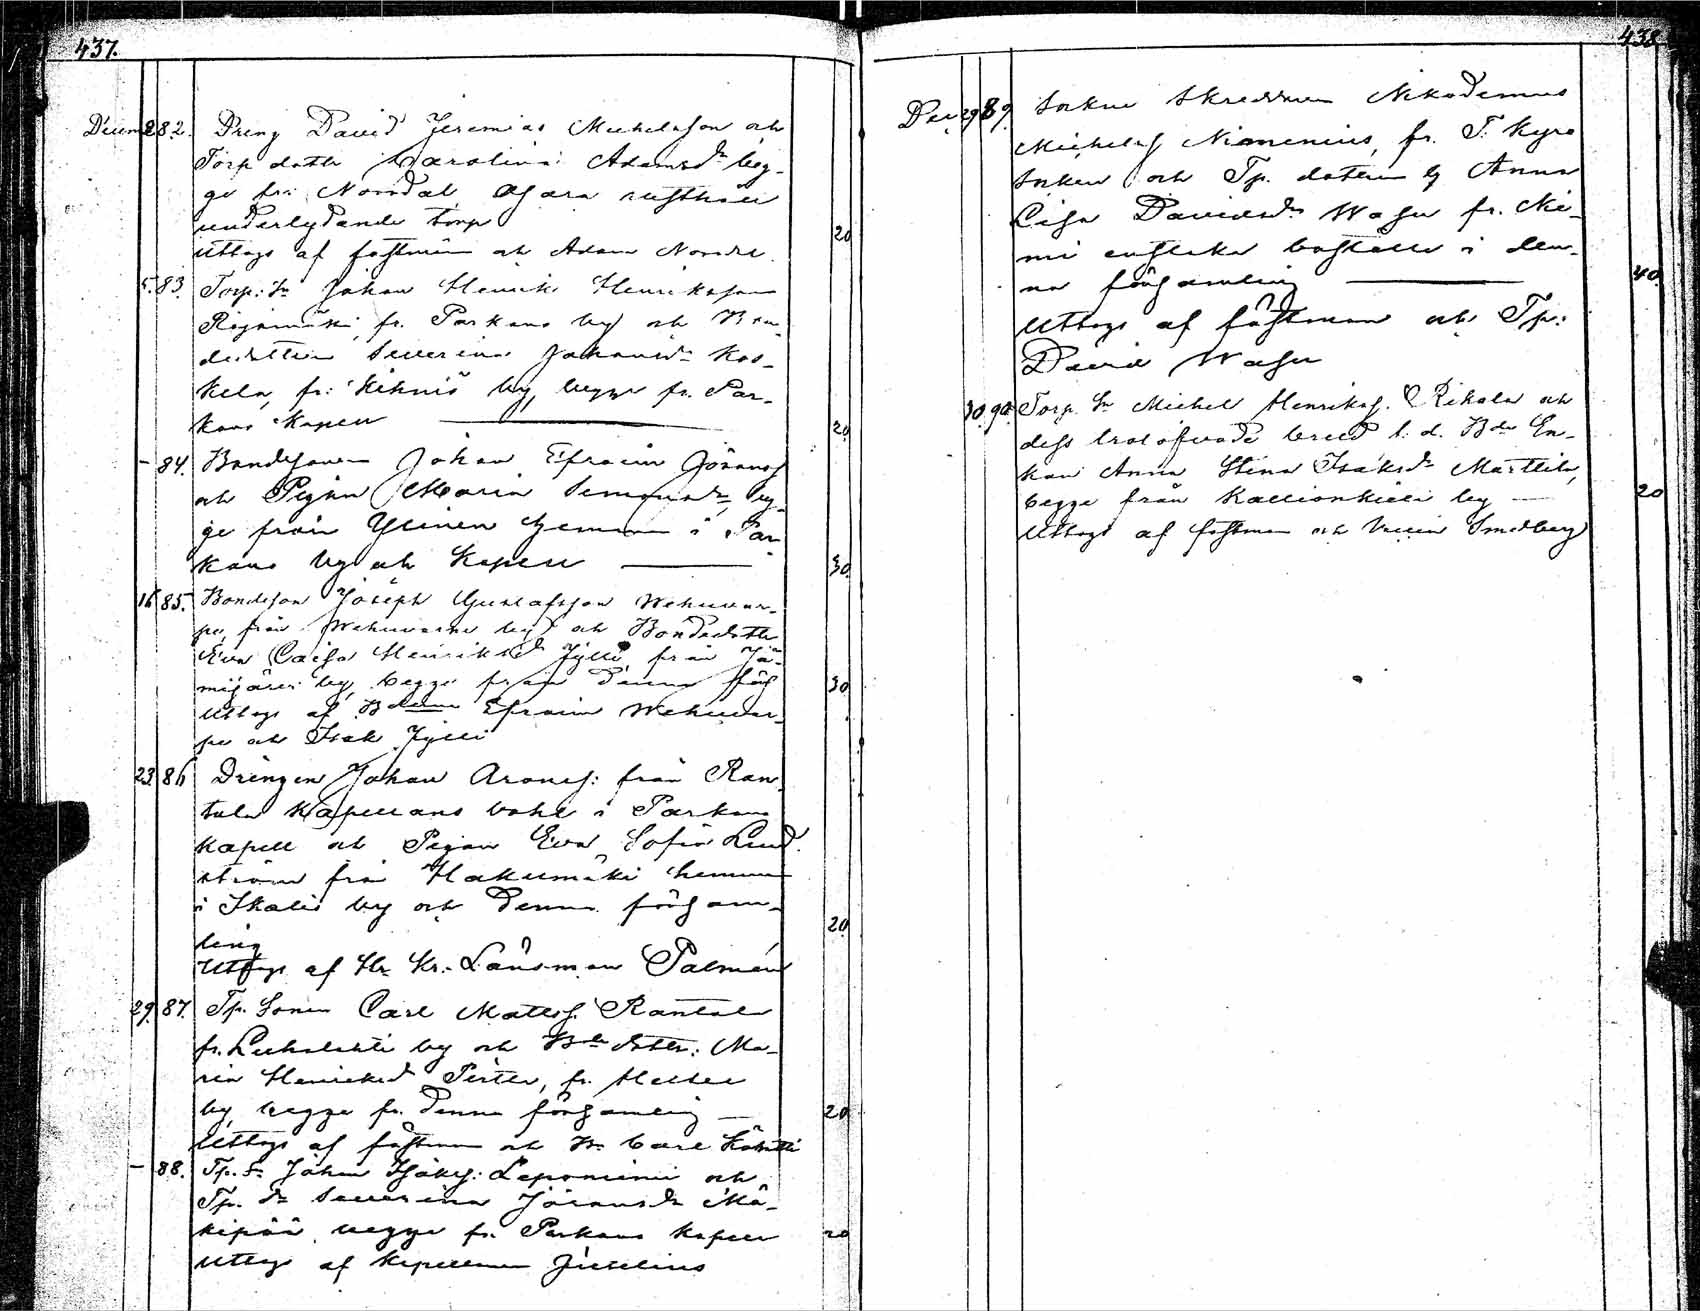 437.
Decem 2 82. Dreng David Jeremias Michelsson och
Torp dottr Carolina Adamsdr beg-
ge frå Norrdal Ojara rusthåll
underlydande torp 20
Uttogs af fästmän och Adam Norrdal.
5. 83. Torp. Sn Johan Henrik Henriksson
fr. Parkano by och Bon-
dedottren Severina Johansdr Kos-
kela, fr. Kihniö by, begge fr. Par-
kano Kapell 20
— 84. Bondesonen Johan Efraim Göransf
och Pigan Maria Simonsdr, beg-
ge från Ylinen hemman i Par-
kano by och Kapell 30
16 85. Bondeson Joseph Gustafsson Wehuvar-
pe, från Wehuvarpe by och Bondedottr
Eva Caisa Henriksd Jylli från Jä-
mijärvi by, begge från denna förs 30
Uttogs af Bderne Efraim Wehuvar-
pe och Isak Jylli
23 86 Drengen Johan Aronsf: från Ran-
tala Kapellans bohl i Parkano
Kapell och Pigan Eva Sofia Lind-
ström från Hakumäki hemman
i Ikalis by och denna försam- 20
ling
Uttogs af Hr Kr. Länsman Palmén
29. 87. Tp. Sonen Carl Mattsf. Rantala
fr. Luhalahti by och Bde dottr: Ma-
ria Henriksd Perttu, fr. Heittee
by, begge fr. denna församling 20
Uttogs af fästman och Bn Carl
— 88. Tp. Sn Johan Isaksf: Leponiemi och
Tp. dr Severina Göransdr Mä-
kipää begge fr. Parkano Kapell 20
Uttogs af Kapellanen
438
Dec 29 89. Sockne Skreddaren Nikodemus
Michelsf Niemenius, fr. T. Kyro
Socken och Tp. dottren Anna
Lisa Davidsdr Wasu fr. Nie-
mi enskeka boställe i den-
na församling 40.
Uttogs af fästman och Tp:
David Wasu
30. 90. Torp. Sn Michel Henriksf. Rikala och
dess trolofvade brud b. d. Bde En-
kan Anna Stina Isaksdr Marttila,
begge från Kallionkieli by 20
Uttogs af fästman och Smedberg